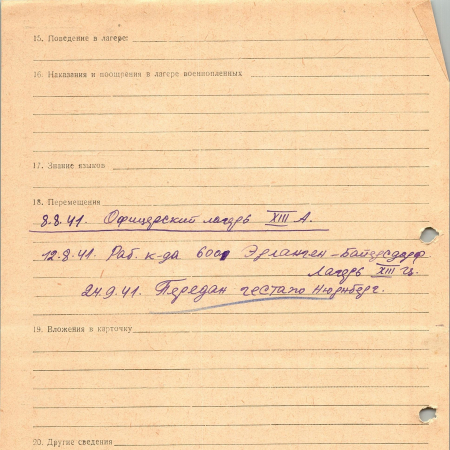 15. Поведение в лагере:
16. Наказания и поощрения в лагере военнопленных
17. Знание языков
18. Перемещения
8.8.41. Офицерский лагерь XIII А.
12.8.41. Раб. к-да 6001 Эрланген-Байерсдорф
лагерь XIII Ц.
24.9.41. Передан гестапо Нюрнберг.
19. Вложения в карточку
20. Другие сведения